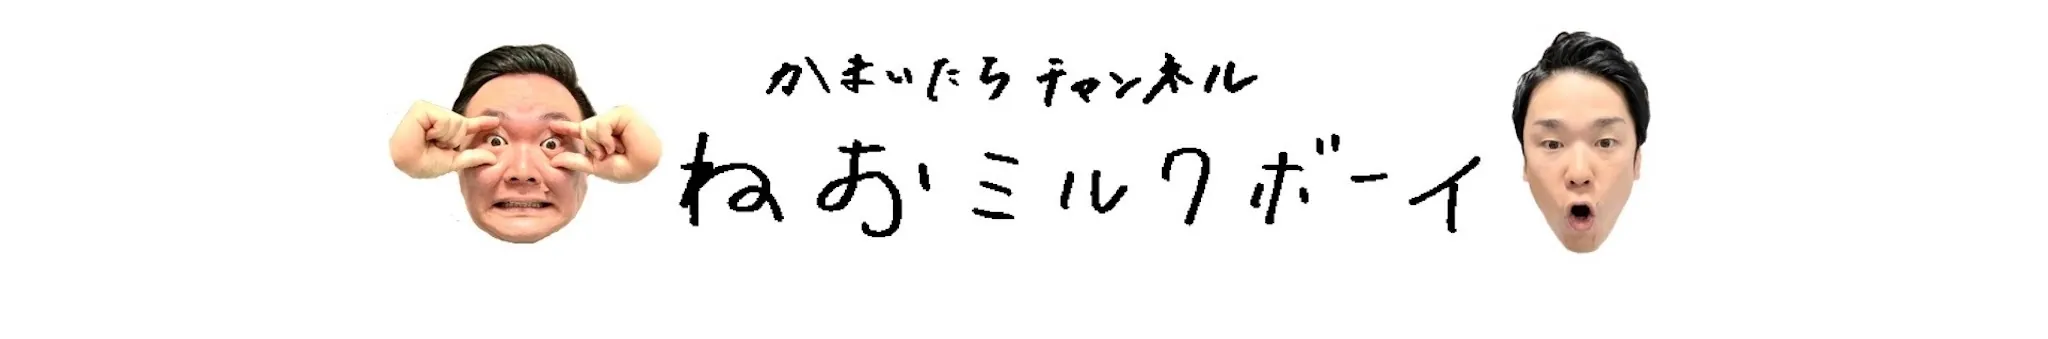 かまいたちチャンネル
ねおミルクボーイ